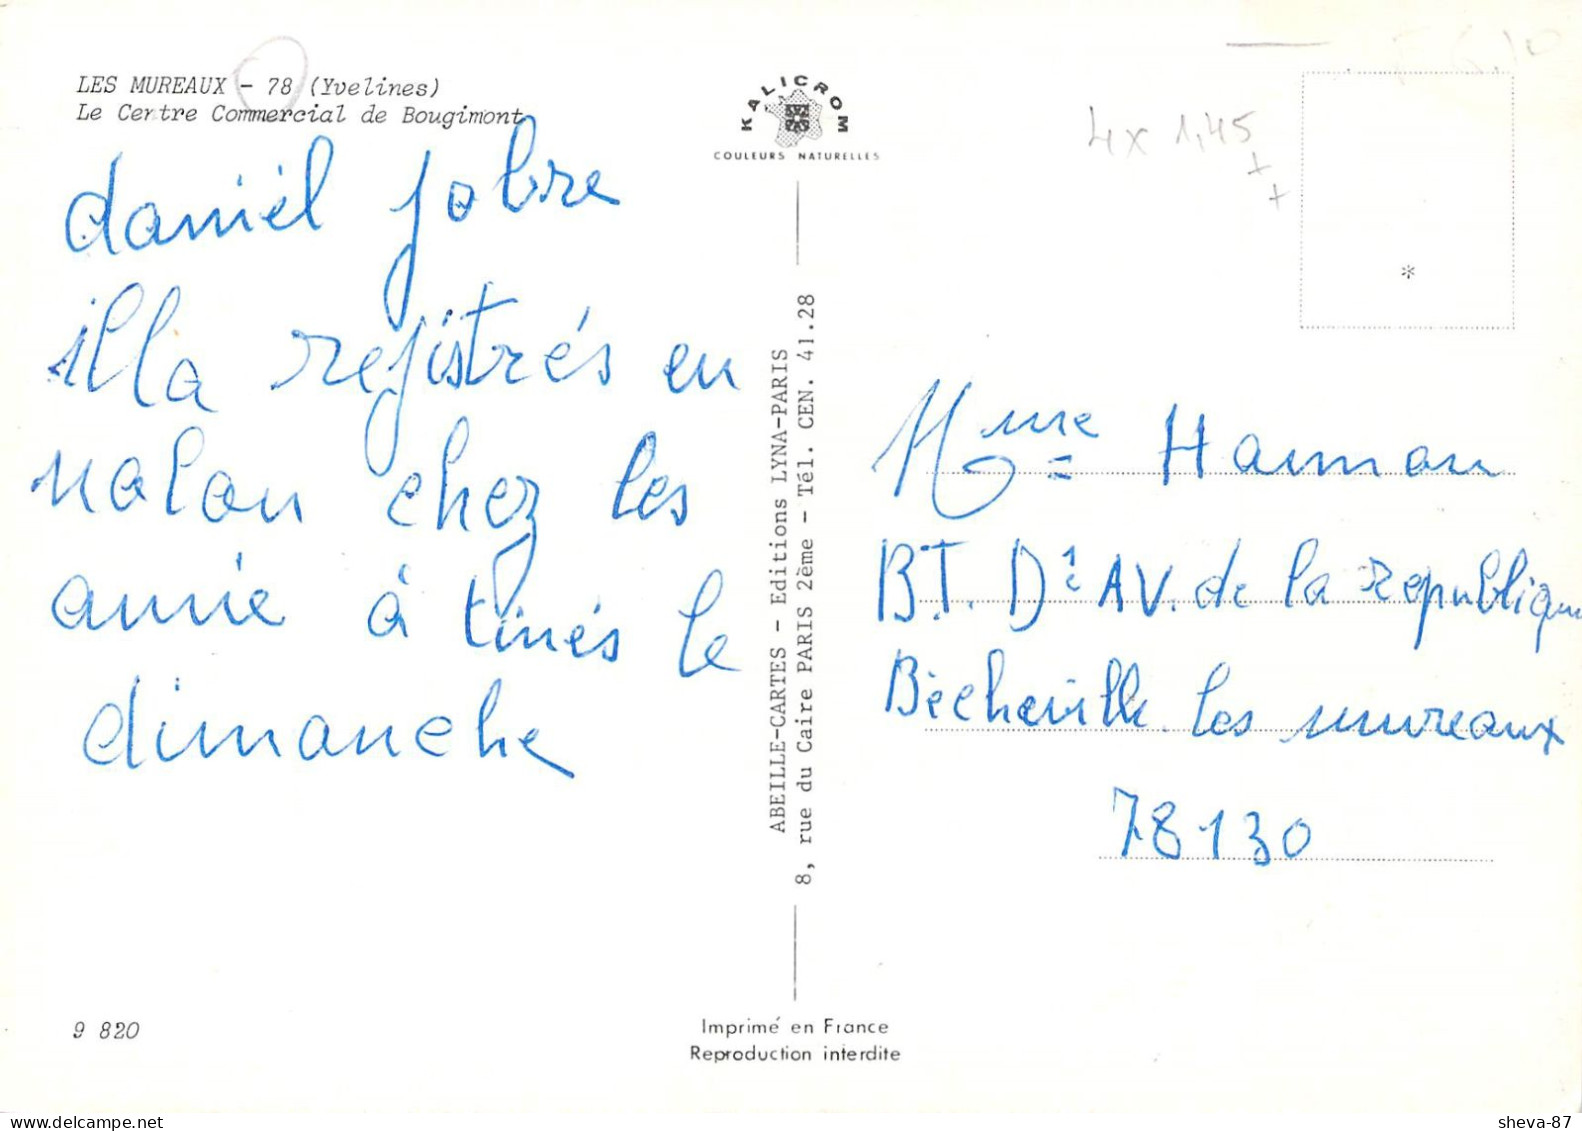 LES MUREAUX - 78 (Yvelines)
Le Centre Commercial de Bougimont
daniel jobre
illa rejistrés en
nalan chez les
amie à tinés le
dimanche
9 820
KALICROM
COULEURS NATURELLES
ABEILLE-CARTES - Editions LYNA-PARIS
8, rue du Caire PARIS 2ème - Tél. CEN. 41.28
Imprimé en France
Reproduction interdite
4x 1,45
*
Mme Hamon
BT. D1 AV. de la republique
Bècheville les mureaux
78130
sheva-87